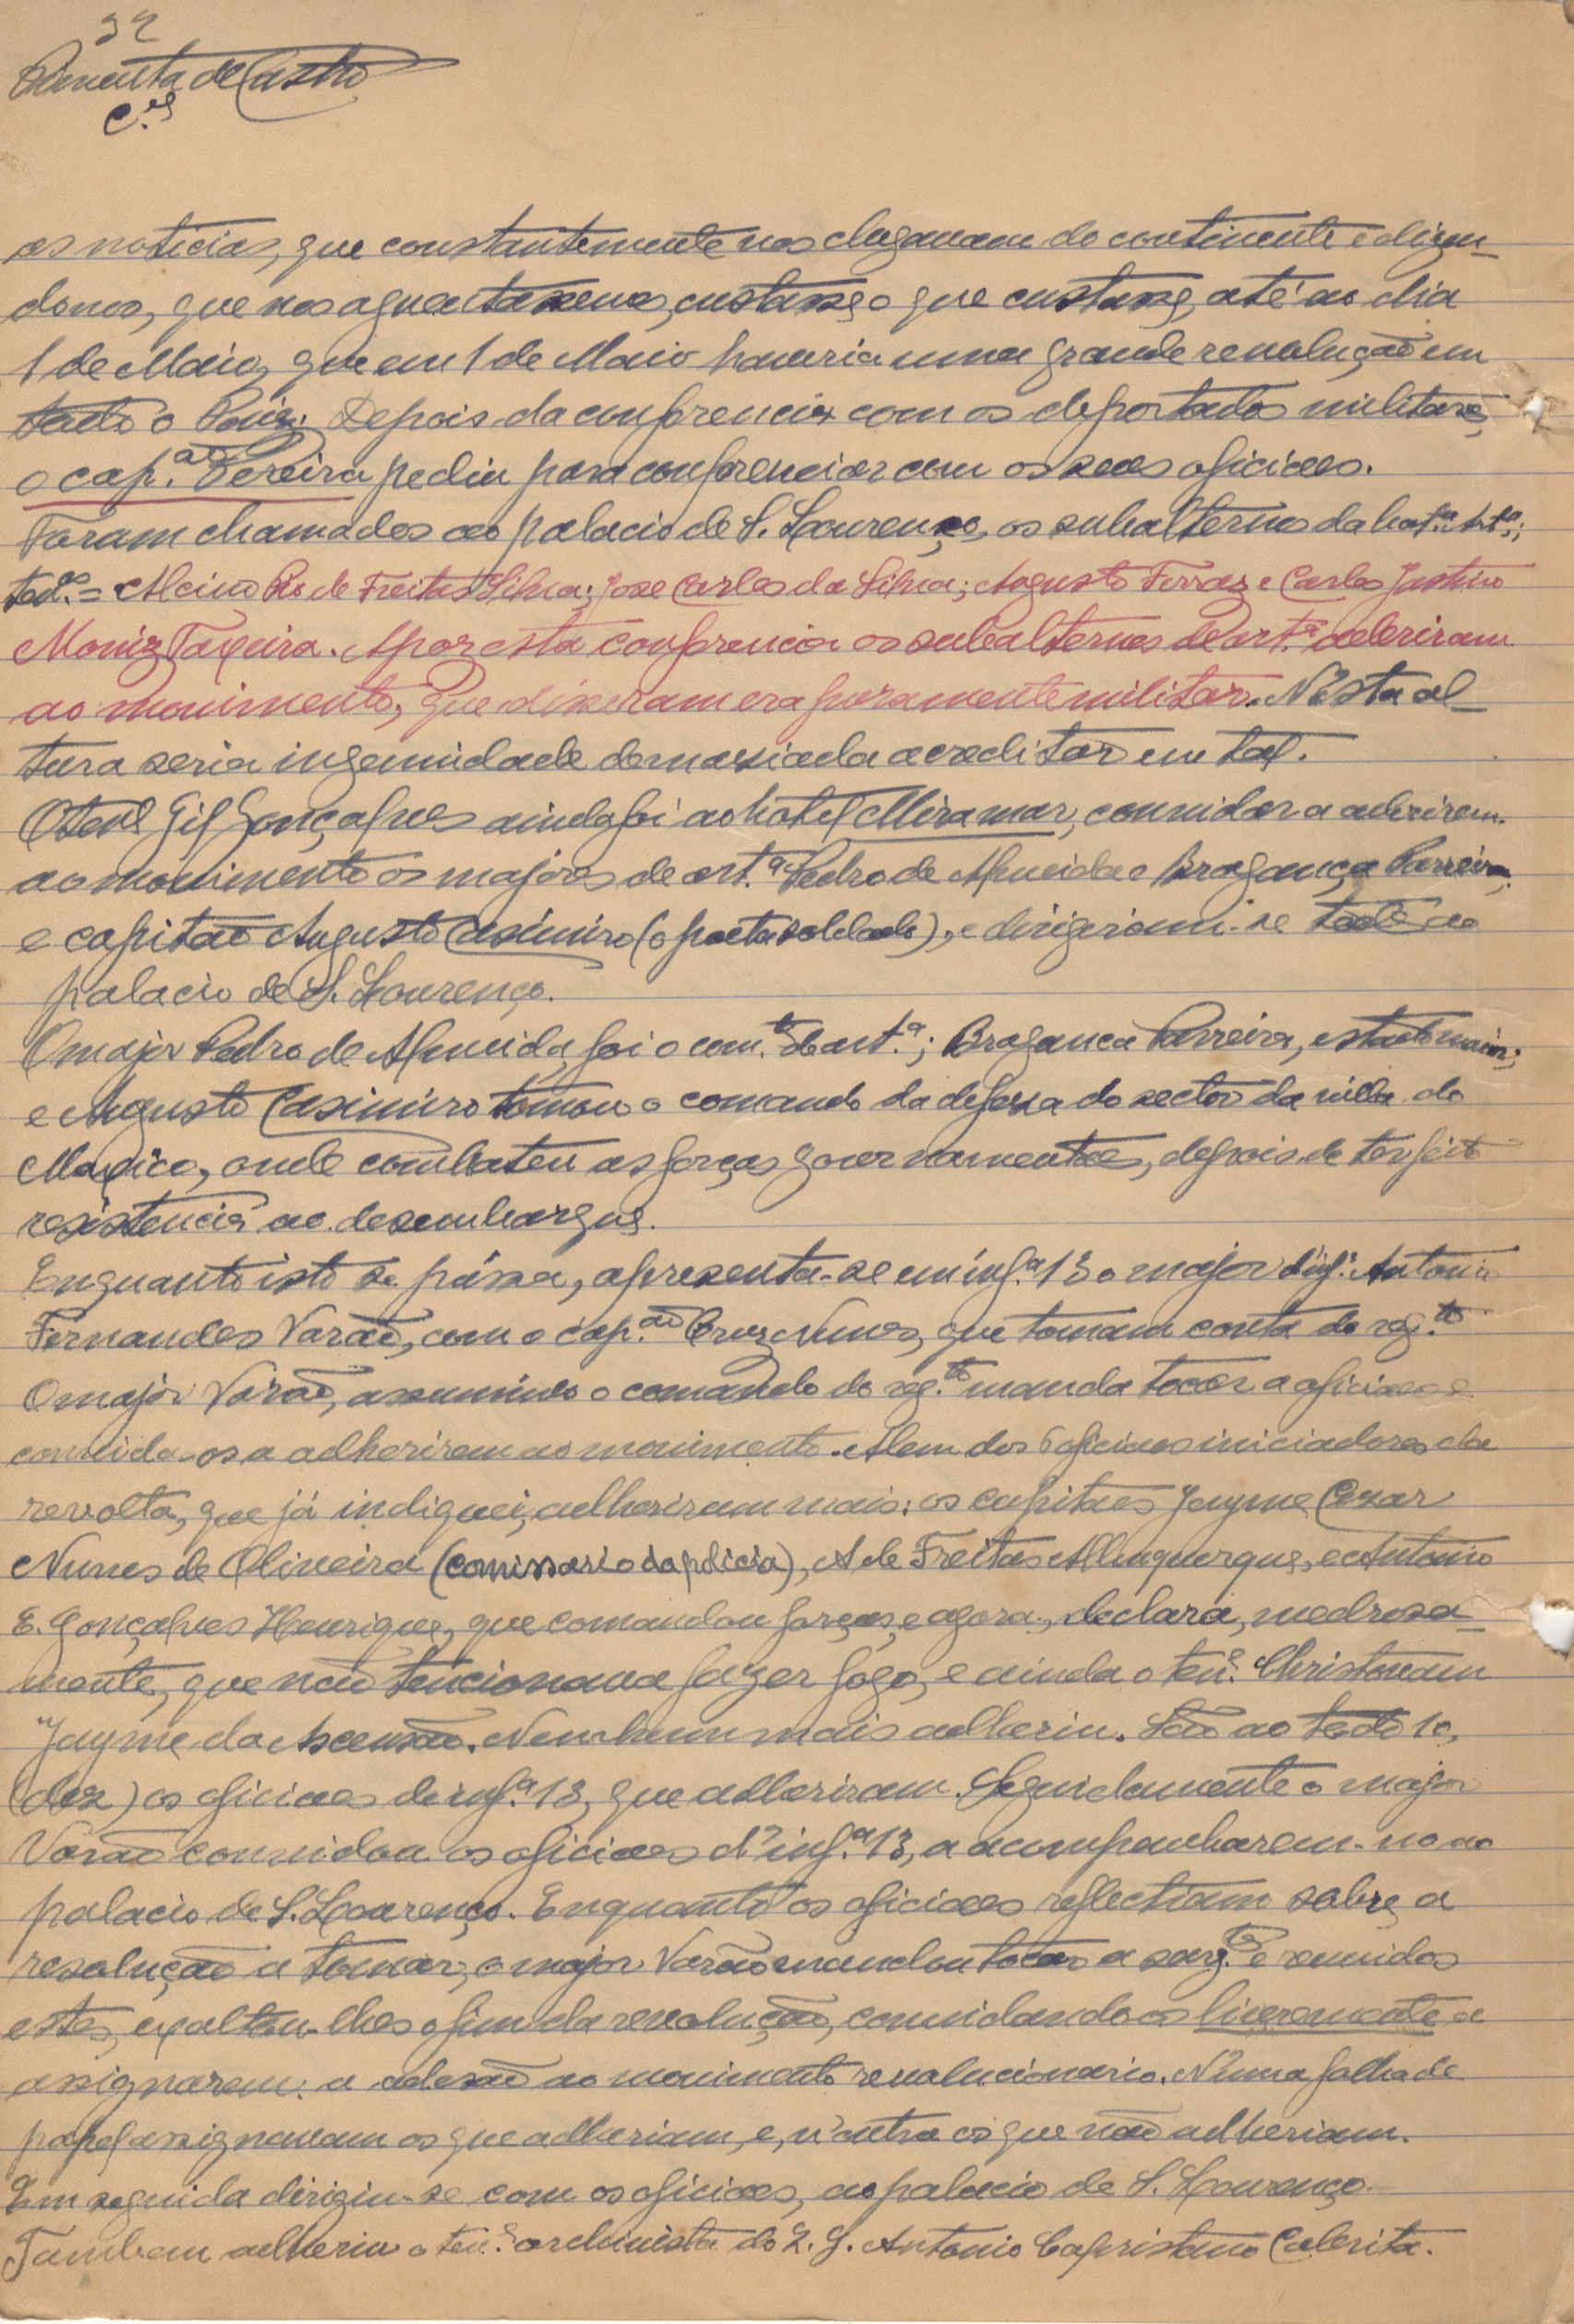 32
Pimenta de Castro
C.el
as noticias, que constantemente nos chegavam do continente e dizen-
donos, que nos aguentassemos, custasse o que custasse, até ao dia
1 de Maio, que em 1 de Maio haveria uma grande revolução em
todo o Paiz. Depois da conferencia com os deportados militares,
o cap.ão Pereira pediu para conferenciar com os seus oficiaes.
Foram chamados ao palacio de S. Lourenço, os subalternos da bat.ia Art.a;
ten.es = Alcino Pio de Freitas Silva; José Carlos da Silva; Augusto Ferraz e Carlos Justino
Moniz Taxeira. Apoz esta conferencia os subalternos de art.a aderiram
ao movimento, que disseram era puramente militar. Nésta al-
tura seria ingenuidade demasiada acreditar em tal.
O ten.e Gil Gonçalves ainda foi ao hotel Miramar, convidar a aderirem
ao movimento os majores de art.a Pedro de Almeida e Bragança Parreira,
e capitão Augusto Casimiro (o poeta soldado), e dirigiram-se todos ao
palacio de S. Lourenço.
O major Pedro de Almeida, foi o com.te da art.a; Bragança Parreira, estado maior;
e Augusto Casimiro tomou o comando da defesa do sector da villa do
Maxico, onde combateu as forças governamentaes, depois de ter feito
resistencia ao desembarque.
Enquanto isto se pássa, apresenta-se em inf.a 13 o major d'inf.a Antonio
Fernandes Varão, com o cap.ão Cruz Nunes, que tomam conta do reg.to
O major Varão, assumindo o comando do reg.to manda tocar a oficiaes e
convida-os a adherirem ao movimento. Alem dos 6 oficiaes iniciadores da
revolta, que já indiquei, adheriram mais: os capitães Jayme Cezar
Nunes de Oliveira (comissario da policia), A de Freitas Albuquerque, e Antonio
E. Gonçalves Henriques, que comandou forças, e agora, declara, medrosa-
mente, que não tencionava fazer fogo, e ainda o ten.e Christovam
Jayme da Ascensão. Nenhum mais adheriu. São ao todo 10,
(dez) os oficiaes de inf.a 13, que adheriram. Seguidamente o major
Varão convidou os oficiaes d'inf.a 13, a acompanharem-no ao
palacio de S. Lourenço. Enquanto os oficiaes reflectiam sobre a
resolução a tomar, o major Varão mandou tocar a sarg.tos e reunidos
estes, exaltou-lhes o fim da revolução, convidando os livremente a
assignarem a adesão ao movimento revolucionario. N'uma folha de
papel assignavam os que adheriam, e, n'outra os que não adheriam.
Em seguida dirigiu-se com os oficiaes, ao palacio de S. Lourenço.
Tambem adheriu o ten.e archivista do Q. G. Antonio Capristano Calerita.